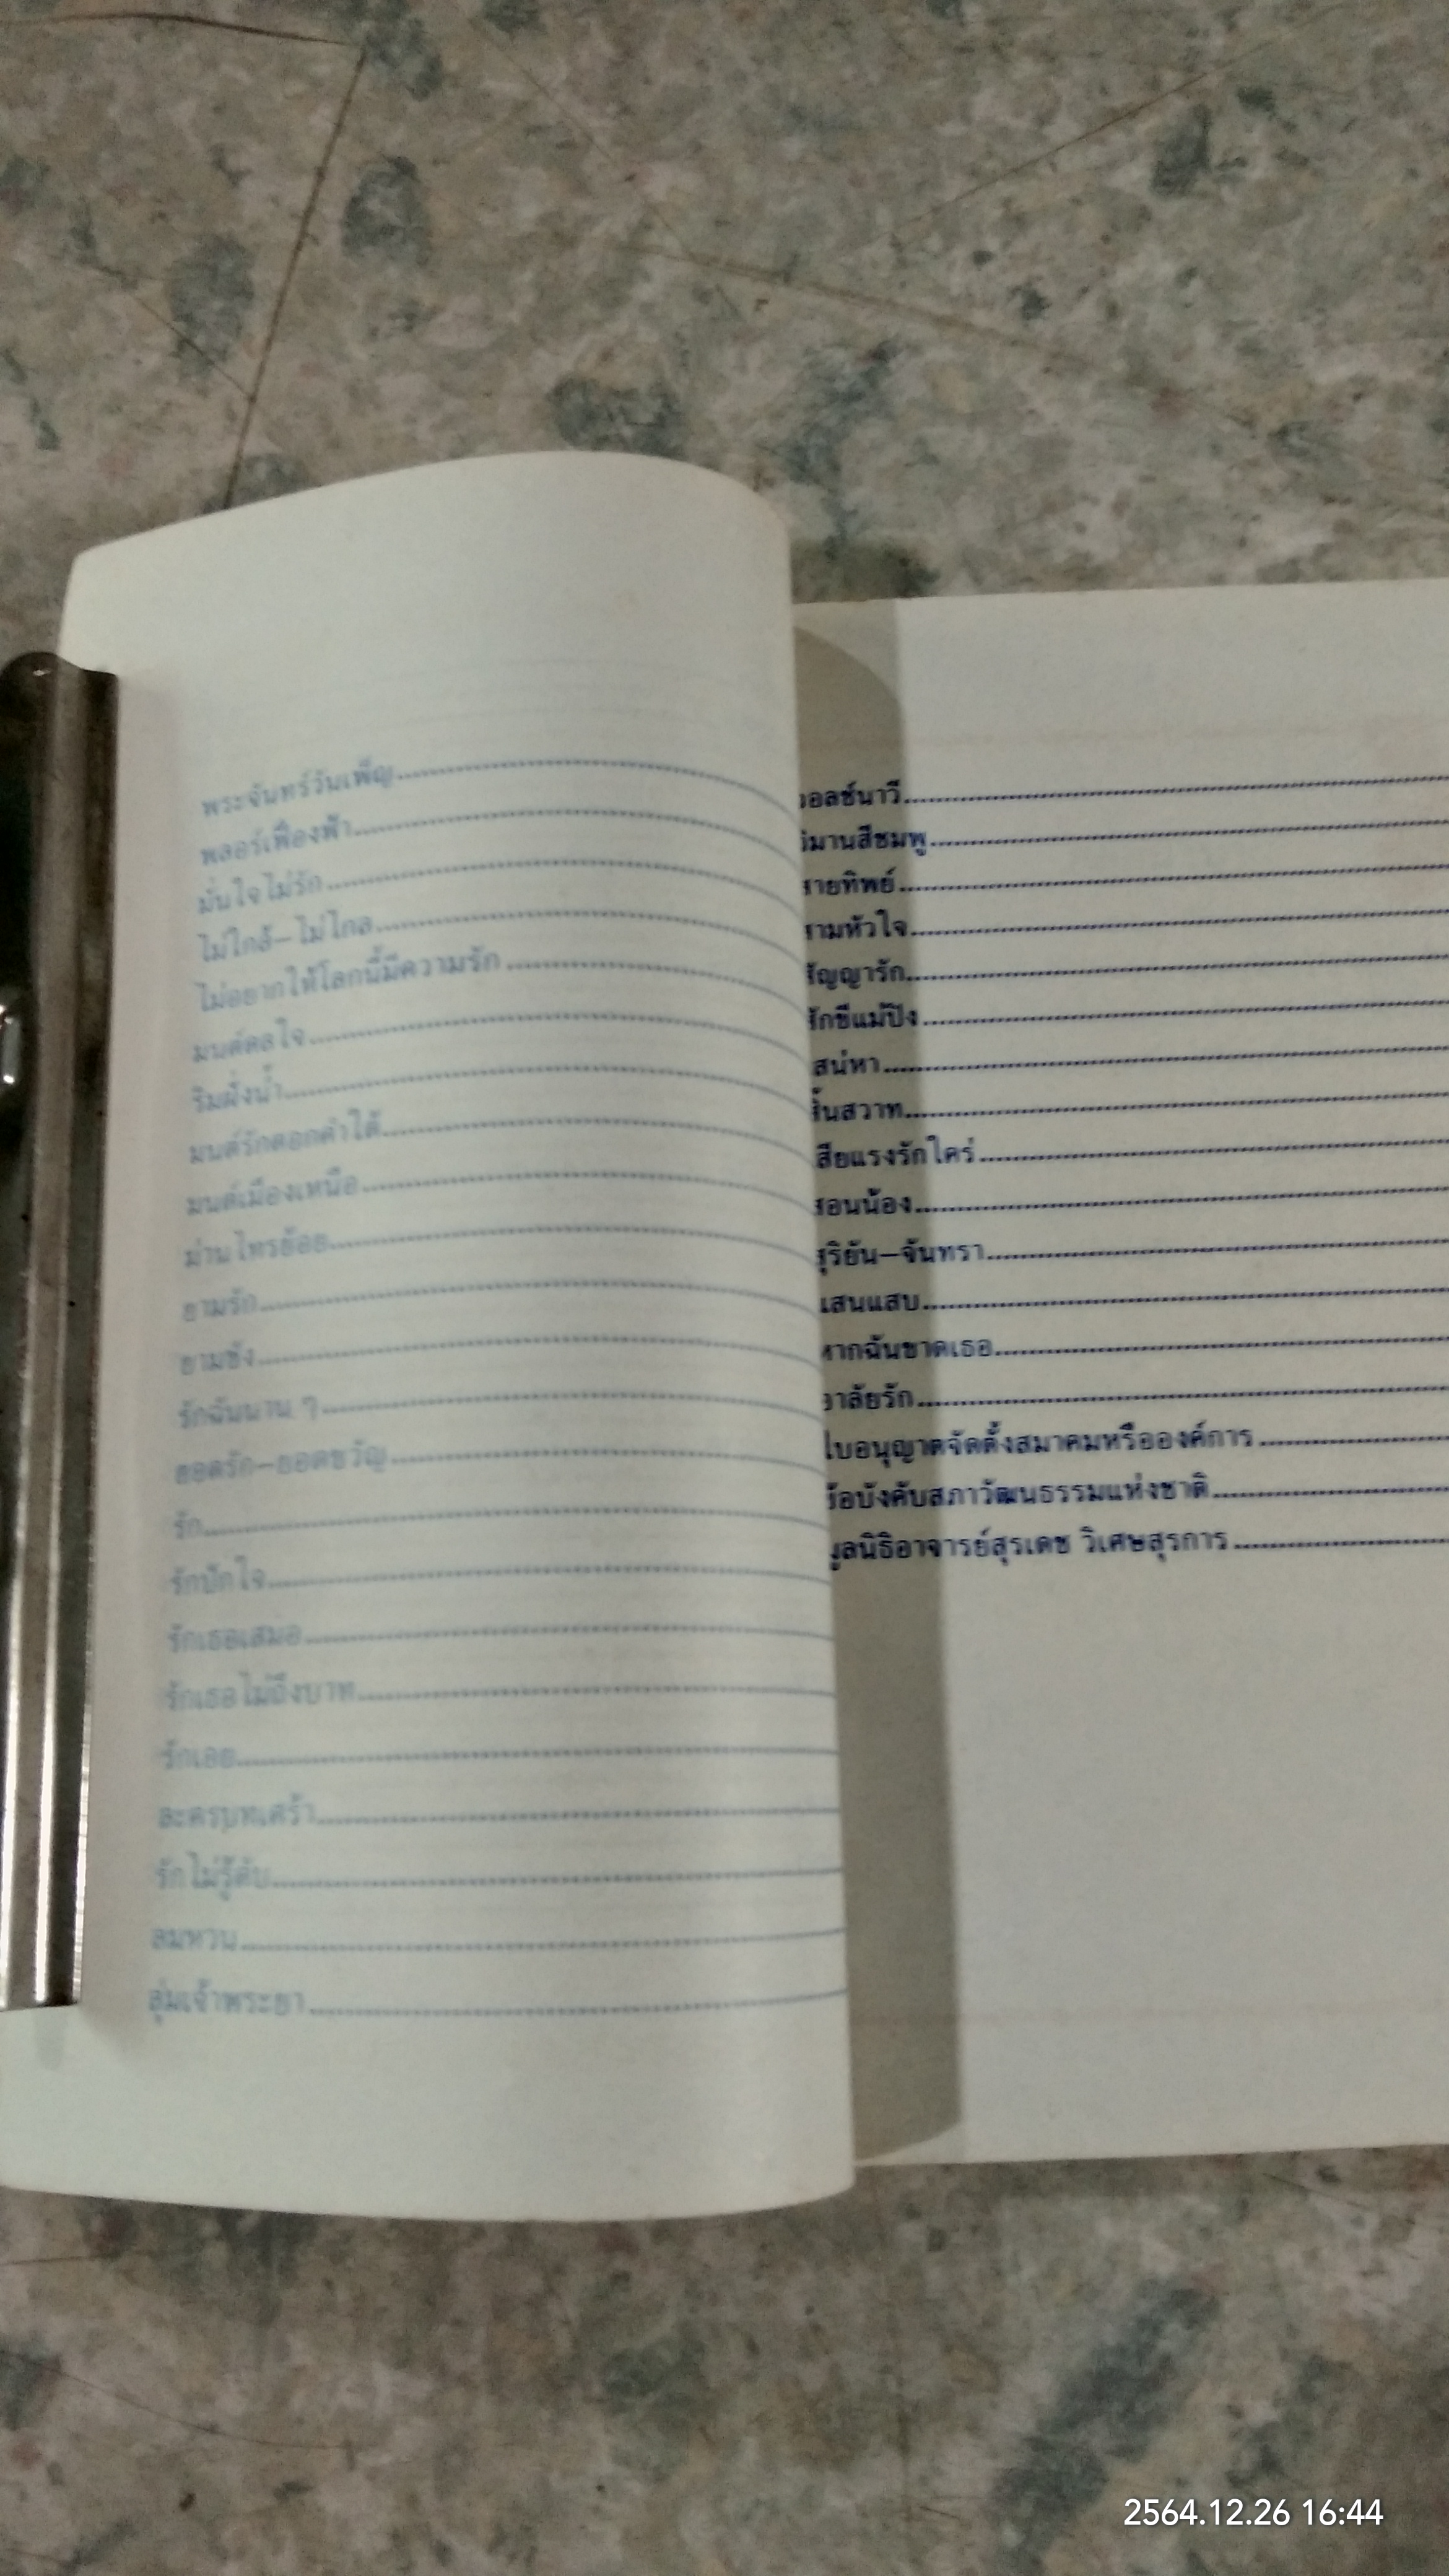 พระจันทร์วันเพ็ญ
ฟลอร์เฟื่องฟ้า
มั่นใจไม่รัก
ไม่ใกล้-ไม่ไกล
ไม่อยากให้โลกนี้มีความรัก
มนต์ดลใจ
ริมฝั่งน้ำ
มนต์รักดอกคำใต้
มนต์เมืองเหนือ
ม่านไทรย้อย
ยามรัก
ยามชัง
รักฉันนาน ๆ
ยอดรัก-ยอดขวัญ
รัก
รักปักใจ
รักเธอเสมอ
รักเธอไม่ถึงบาท
รักเอย
ละครบทเศร้า
รักไม่รู้ดับ
ลมหวน
ลุ่มเจ้าพระยา
อลซ์นาวี
มานสีชมพู
ายทิพย์
ามหัวใจ
ัญญารัก
ักขีแม่ปิง
สน่หา
ิ้นสวาท
สียแรงรักใคร่
อนน้อง
ุริยัน-จันทรา
แสนแสบ
ากฉันขาดเธอ
าลัยรัก
ใบอนุญาตจัดตั้งสมาคมหรือองค์การ
้อบังคับสภาวัฒนธรรมแห่งชาติ
ูลนิธิอาจารย์สุรเดช วิเศษสุรการ
2564.12.26 16:44